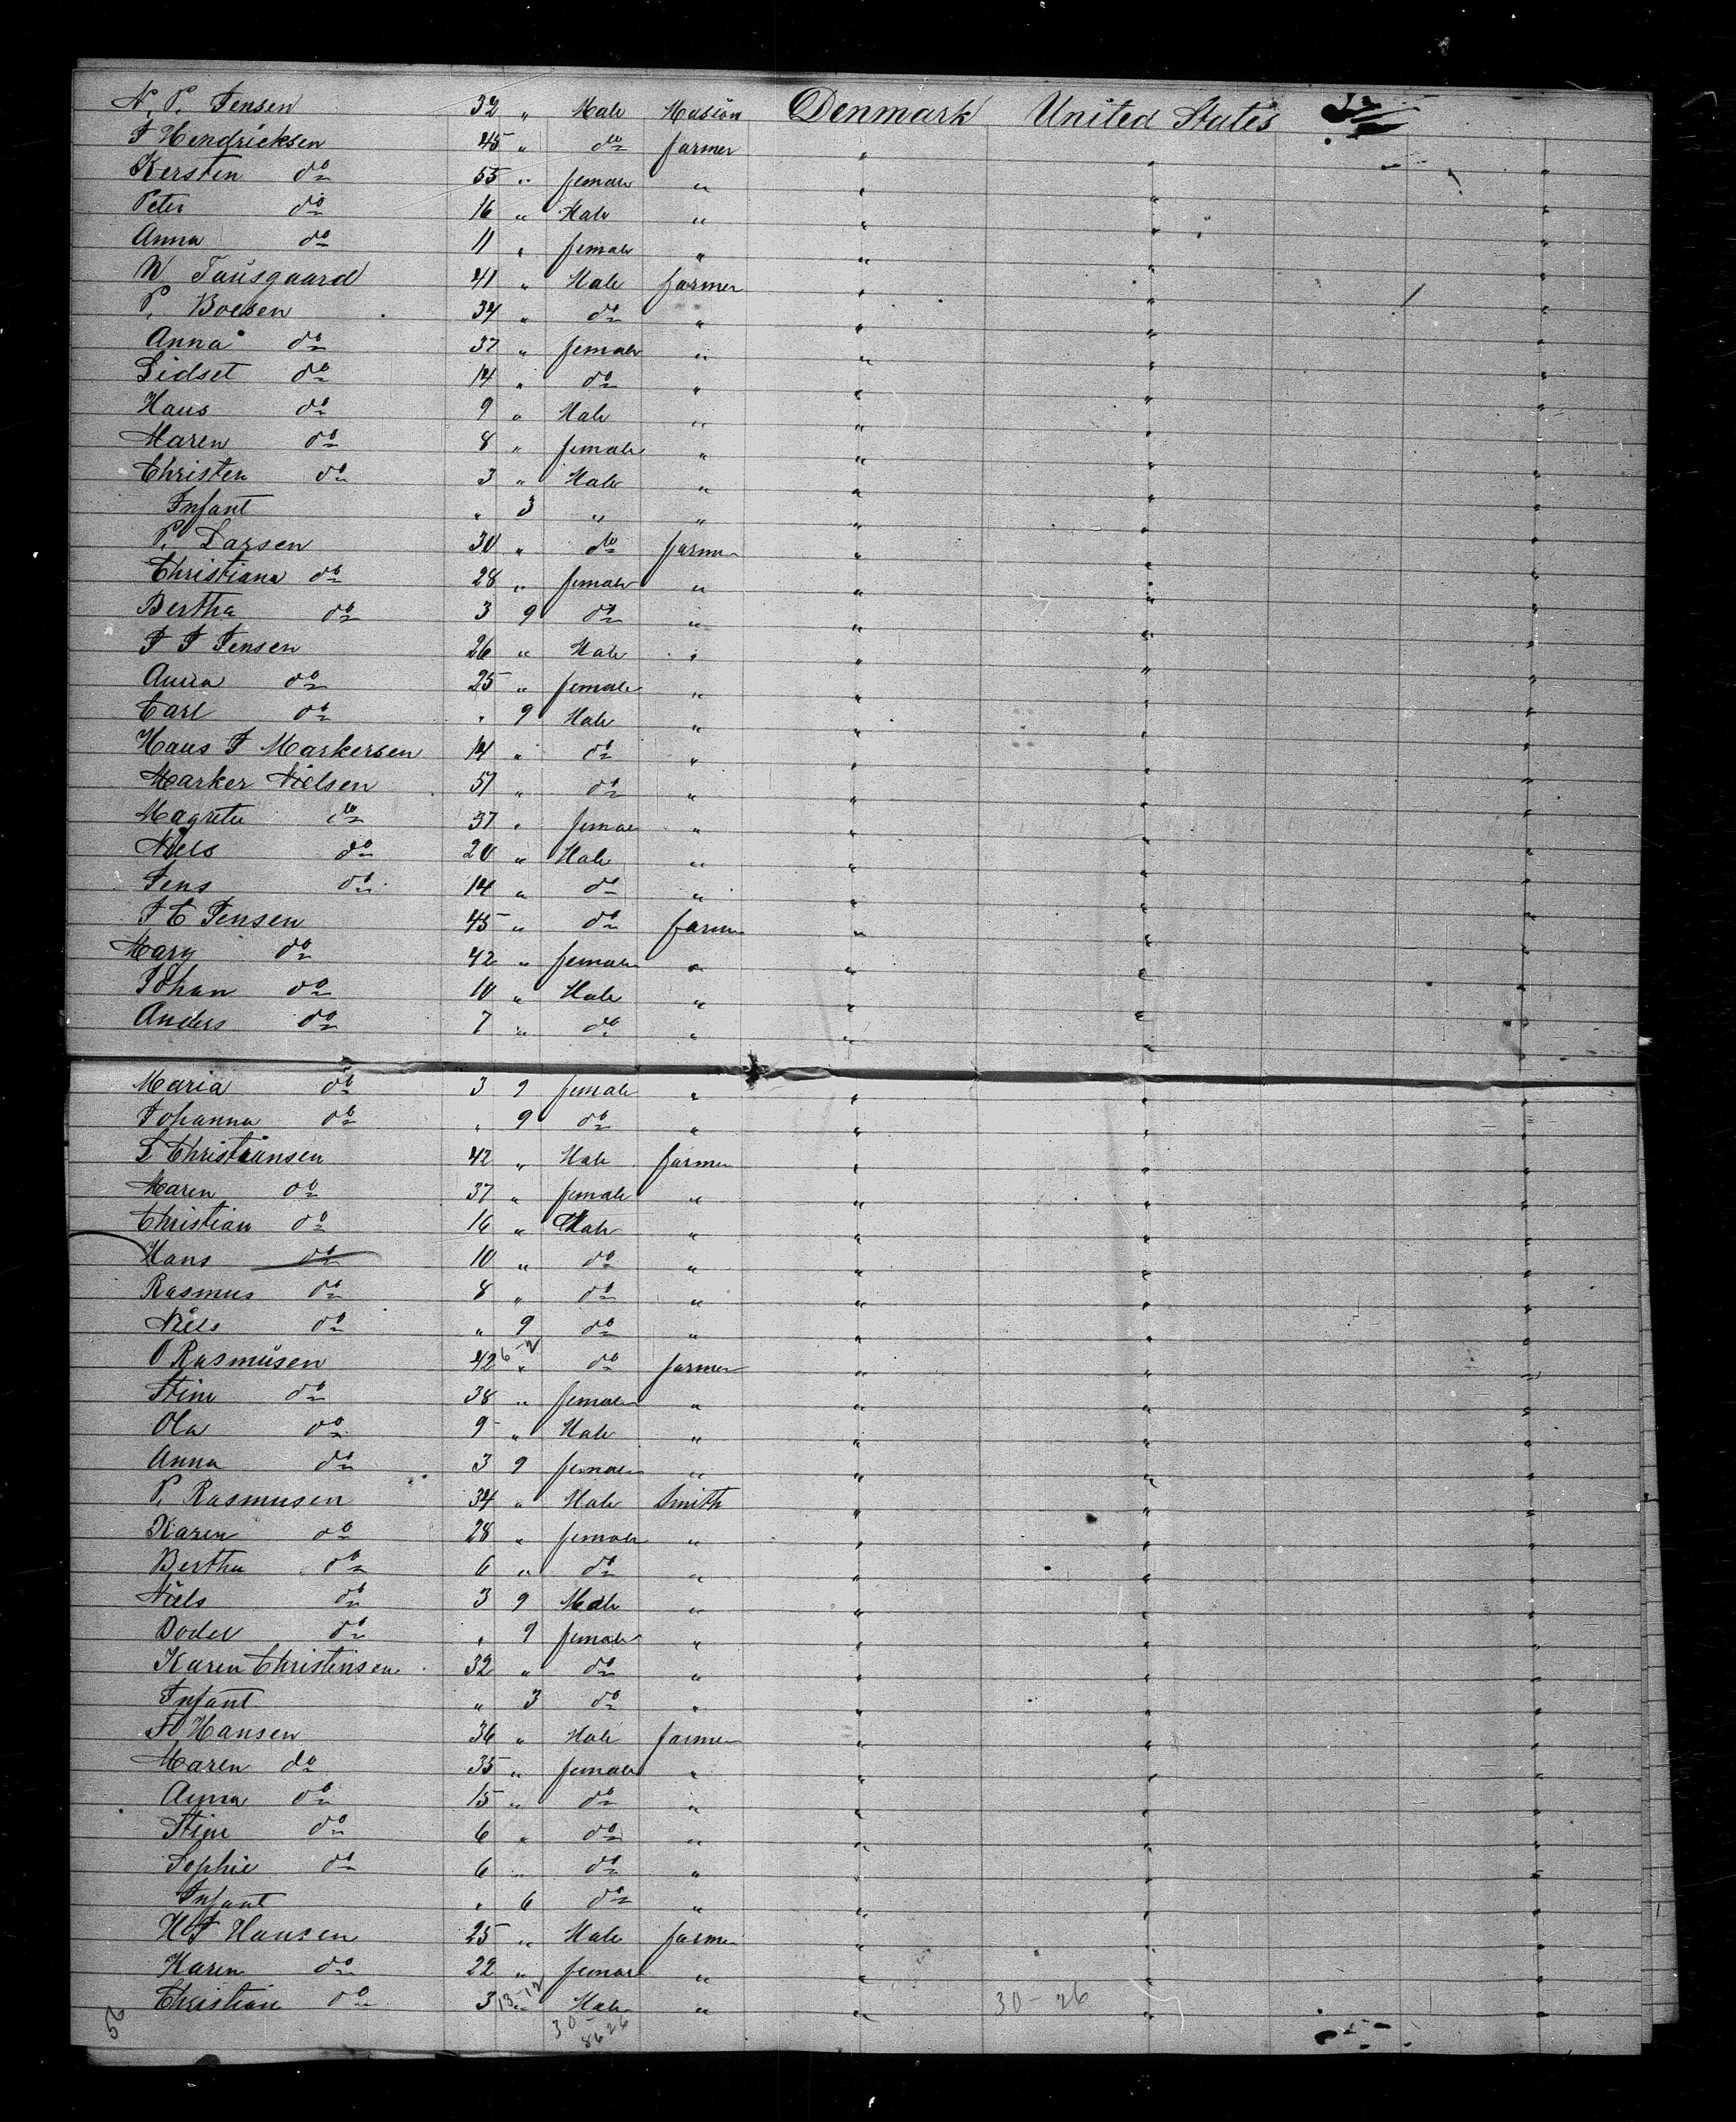 N. P. Jensen 32 " Male Masson Denmark United States
J Hendricksen 45 " do farmer " " "
Kersten do 55 " female " " " "
Peter do 16 " Male " " " "
Anna do 11 " female " " " "
N Tausgaard 41 " Male farmer " " "
P. Boesen 34 " do " " " "
Anna do 37 " female " " " "
Sidset do 14 " do " " " "
Hans do 9 " Male " " " "
Maren do 8 " female " " " "
Christen do 3 " Male " " " "
Infant " 3 " " " " "
P. Larsen 30 " do farmer " " "
Christiana do 28 " female " " " "
Bertha do 3 9 do " " " "
J J Jensen 26 " Male " " " "
Anna do 25 " female " " " "
Carl do " 9 Male " " " "
Hans J Markersen 14 " do " " " "
Marker Nielsen 51 " do " " " "
Magrete do 37 " female " " " "
Niels do 20 " Male " " " "
Jens do 14 " do " " " "
J C Jensen 45 " do farmer " " "
Mary do 42 " female " " " "
Johan do 10 " Male " " " "
Anders do 7 " do " " " "
Maria do 3 9 female " " " "
Johanna do " 9 do " " " "
L Christiansen 42 " Male farmer " " "
Maren do 37 " female " " " "
Christian do 16 " Male " " " "
Hans do 10 " do " " " "
Rasmus do 8 " do " " " "
Niels do " 9 do " " " "
O Rasmusen 42 6-2 " do farmer " " "
Stine do 38 " female " " " "
Ola do 9 " Male " " " "
Anna do 3 9 female " " " "
P. Rasmusen 34 " Male Smith " " "
Karen do 28 " female " " " "
Bertha do 6 " do " " " "
Niels do 3 9 Male " " " "
Bodel do " 9 female " " " "
Karen Christensen 32 " do " " " "
Infant " 3 do " " " "
Hansen 36 " Male farmer " " "
Maren do 35 " female " " " "
Anna do 15 " do " " " "
Stine do 6 " do " " " "
Sophie do 6 " do " " " "
Infant " 6 do " " " "
H J Hansen 25 " Male farmer " " "
Karen do 22 " female " " " "
Christian do 3 13-12 " Male " " " "
30-26
56
30-
8626